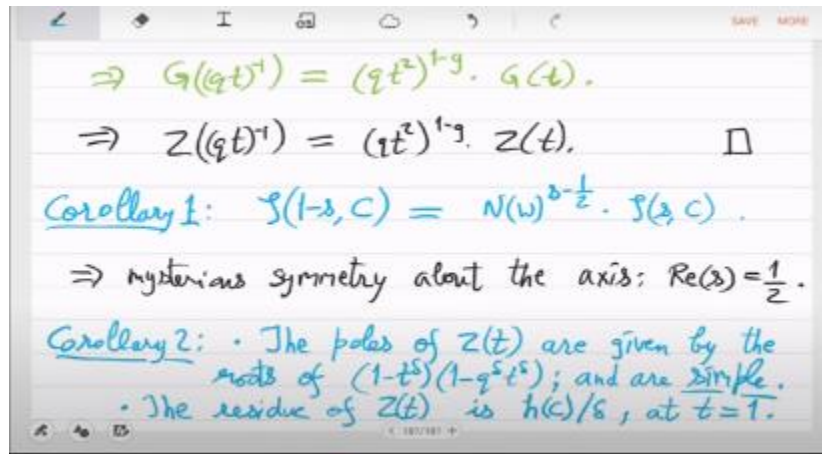 SAVE MORE
⇒ G((qt)⁻¹) = (qt²)^{1-g}. G(t).
⇒ Z((qt)⁻¹) = (qt²)^{1-g}. Z(t). □
Corollary 1: ζ(1-s, C) = N(ω)^{s-1/2} . ζ(s, C) .
⇒ mysterious symmetry about the axis: Re(s) = 1/2 .
Corollary 2: · The poles of Z(t) are given by the
roots of (1-t^δ)(1-q^δ t^δ); and are simple.
· The residue of Z(t) is h(C)/δ, at t=1.